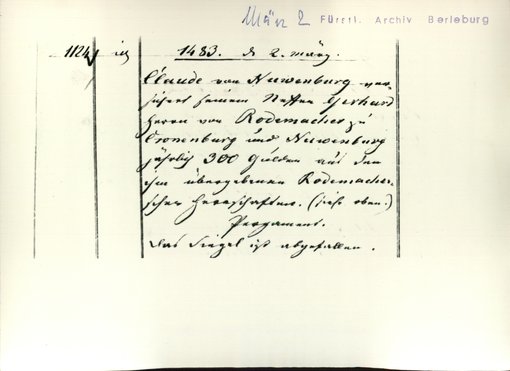 März 2 Fürstl. Archiv Berleburg
1124 1483. d 2. März.
Claude von Nuwenburg ver-
sichert seinem Neffen Gerhard
Herrn von Rodemacher zu
Cronenburg und Nuwenburg
jährlich 300 Gulden aus den
ihm übergebenen Rodemacher-
schen Herrschaften. (siehe oben.)
Pergament.
Das Siegel ist abgefallen.